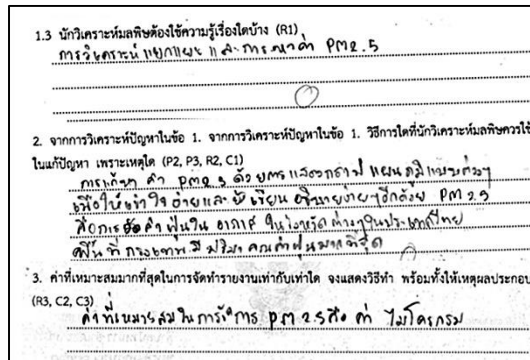 1.3 นักวิเคราะห์มลพิษต้องใช้ความรู้เรื่องใดบ้าง (R1)
การวิเคราะห์ แยกแยะ และการหาค่า PM 2.5
2. จากการวิเคราะห์ปัญหาในข้อ 1. จากการวิเคราะห์ปัญหาในข้อ 1. วิธีการใดที่นักวิเคราะห์มลพิษควรใช้
ในแก้ปัญหา เพราะเหตุใด (P2, P3, R2, C1)
ค่า PM 2.5 ด้วยการแสดงกราฟ แผนภูมิแบบต่างๆ
เพื่อให้เข้าใจง่ายและ PM 2.5
คือการวัดค่าฝุ่นใน อากาศ ในจังหวัดต่างๆในประเทศไทย
พื้นที่ กรุงเทพ มีปริมาณค่าฝุ่นมากที่สุด
3. ค่าที่เหมาะสมมากที่สุดในการจัดทำรายงานเท่ากับเท่าใด จงแสดงวิธีทำ พร้อมทั้งให้เหตุผลประกอบ
(R3, C2, C3)
ค่าที่เหมาะสมในการ PM 2.5 คือ ค่า ไมโครกรัม